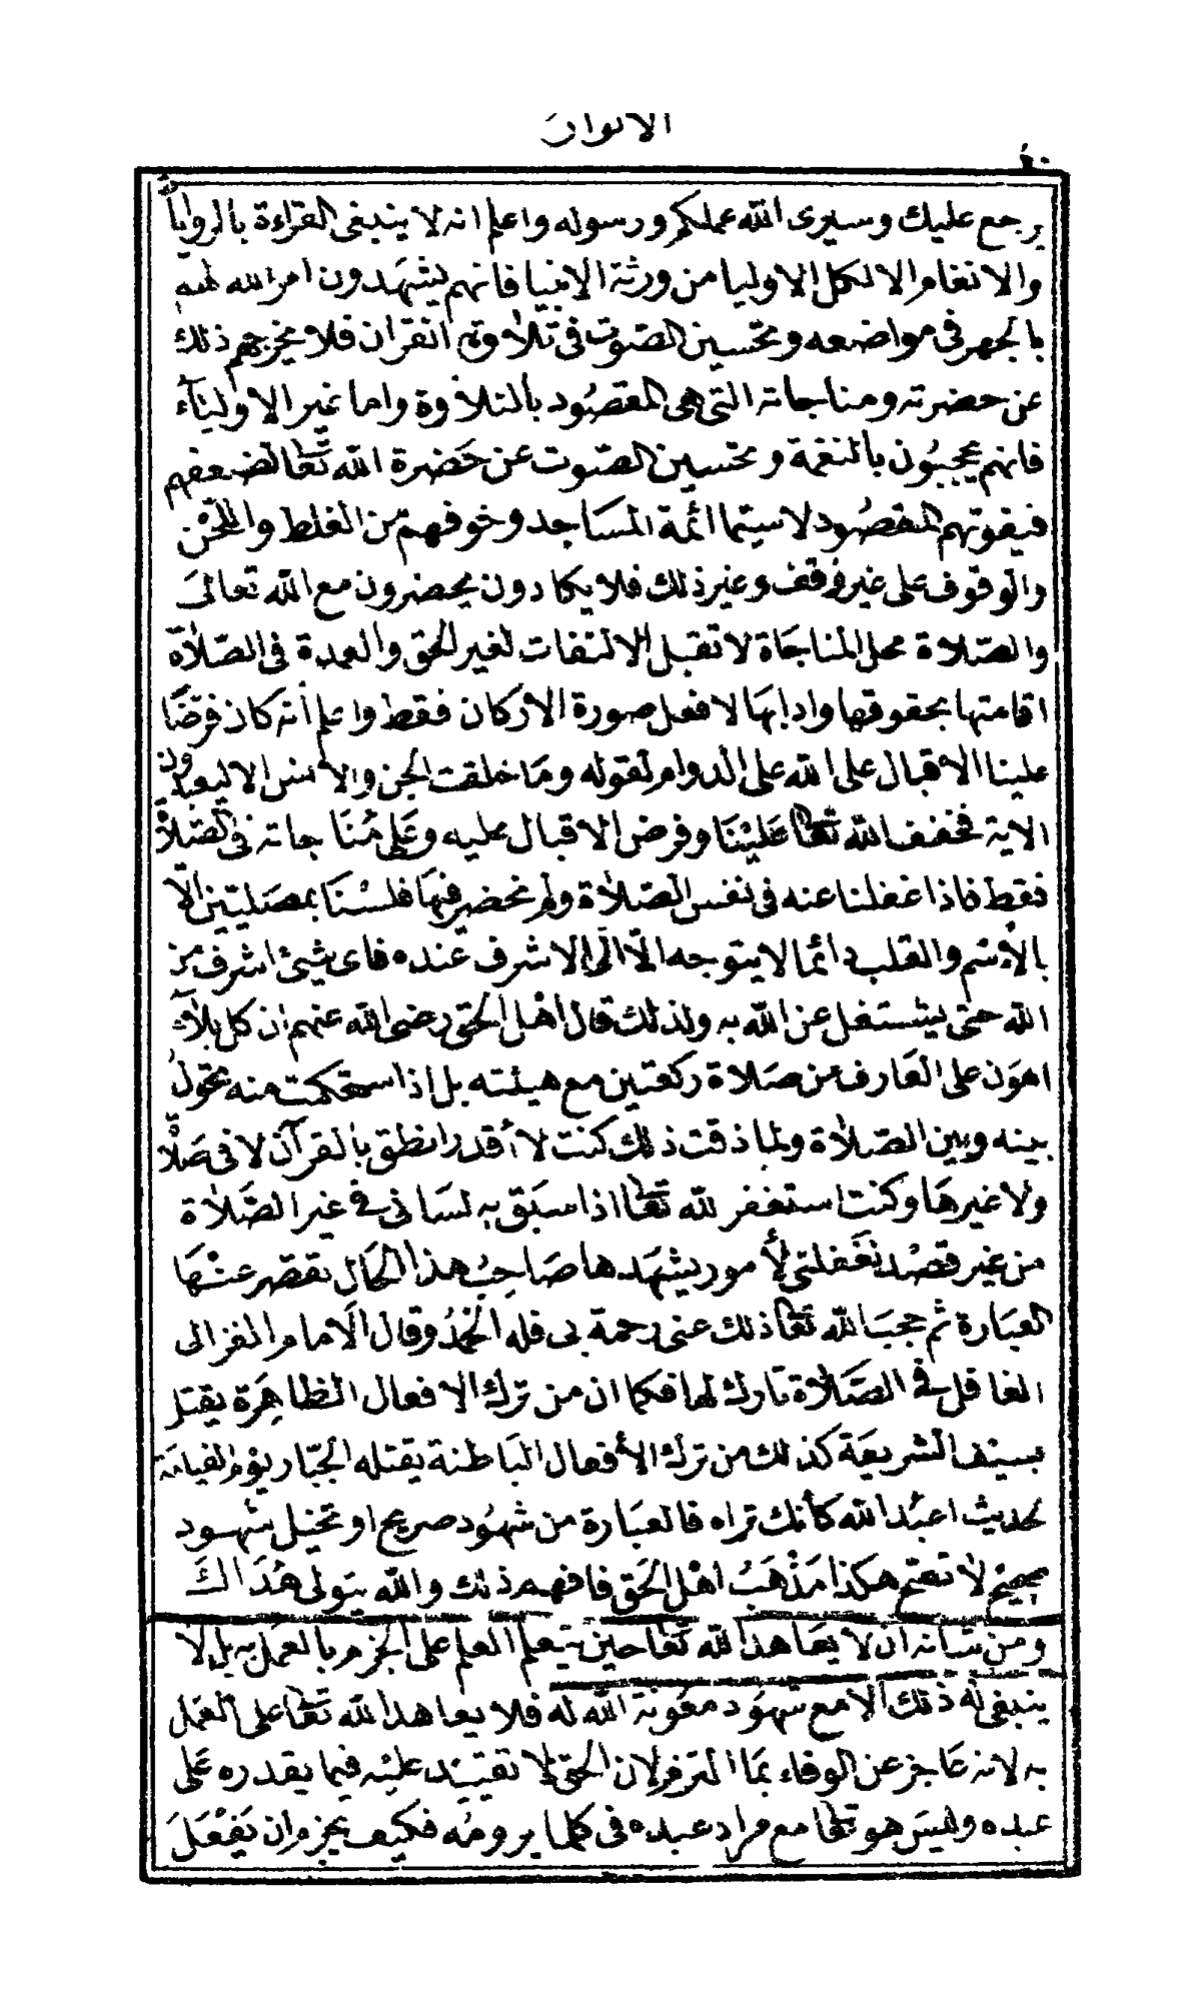 الانوار
يرجع عليك وسيرى الله عملكم ورسوله واعلم انه لا ينبغى القراءة بالروايات
والانغام الا لكمل الاوليا من ورثة الانبيا فانهم يشهدون امر الله لهم
بالجهر فى مواضعه وتحسين الصوت فى تلاوة القران فلا يخرجهم ذلك
عن حضرته ومناجاته التى هى المقصود بالتلاوة واما غير الاوليآء
فانهم يحجبون بالنغمة وتحسين الصوت عن حضرة الله تعا لضعفهم
فيفوتهم المقصود لا سيما ائمة المساجد وخوفهم من الغلط واللحن
والوقوف على غير وقف وغير ذلك فلا يكادون يحضرون مع الله تعالى
والصلاة محل المناجاة لا تقبل الالتفات لغير الحق والعمدة فى الصلاة
اقامتها بحقوقها وادابها لا فعل صورة الأركان فقط واعلم أنه كان فرضا
علينا الاقبال على الله على الدوام لقوله وما خلقت الجن والانس الا ليعبدون
الاية فخفف الله تعا علينا وفرض الاقبال عليه وعلى مناجاته فى الصلاة
فقط فاذا غفلنا عنه فى نفس الصلاة ولم نحضر فيها فلسنا بمصليين الا
بالاسم والقلب دائما لا يتوجه الا الى الاشرف عنده فاى شيئ اشرف من
الله حتى يشتغل عن الله به ولذلك قال اهل الحق رضى الله عنهم ان كل بلاء
اهون على العارف من صلاة ركعتين مع هيئته بل اذا استحكمت منه تحول
بينه وبين الصلاة ولما ذقت ذلك كنت لا أقدر انطق بالقرآن لا فى صلاة
ولا غيرها وكنت استغفر لله تعا اذا سبق به لسانى في غير الصلاة
من غير قصد نغفلتي لأمور يشهدها صاحب هذا الحال تقصر عنها
العبارة ثم حجب الله تعا ذلك عنى رحمة بى فله الحمد وقال الامام الغزالى
الغافل في الصلاة تارك لها فكما ان من ترك الافعال الظاهرة يقتل
بسيف الشريعة كذلك من ترك الأفعال الباطنة يقتله الجبار يوم القيامة
لحديث اعبد الله كأنك تراه فالعبارة من شهود صريح او تخيل شهود
صحيح لا تصح هكذا مذهب اهل الحق فافهم ذلك والله يتولى هداك
ومن شانه ان لا يعاهد الله تعا حين يتعلم العلم على الجزم بالعمل به بل لا
ينبغى له ذلك الا مع شهود معونة الله له فلا يعاهد الله تعا على العمل
به لانه عاجز عن الوفاء بما التزم لان الحق لا تقييد عليه فيما يقدره على
عبده وليس هو تعا مع مراد عبده فى كلما يرومه فكيف يجزم ان يفعل